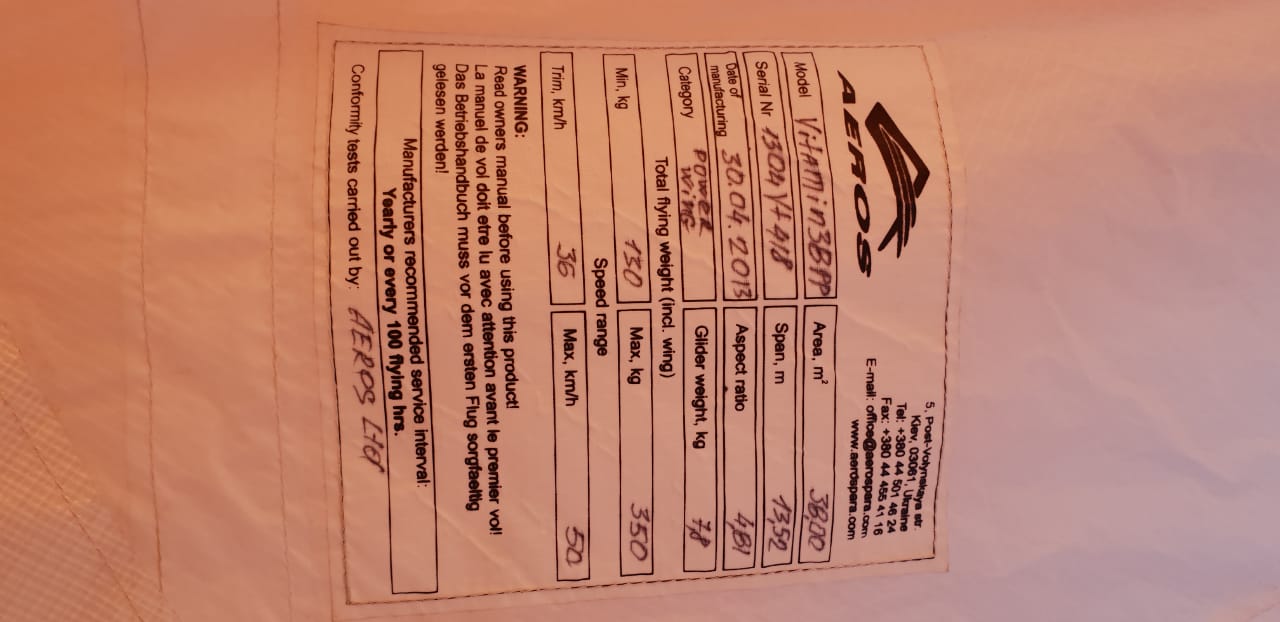 AEROS
5, Post-Volynskaya str.
Kiev, 03061, Ukraine
Tel: +380 44 501 46 24
Fax: +380 44 455 41 16
E-mail: office@aerospara.com
www.aerospara.com
Model Vitamin38PP Area, m² 38,00
Serial Nr Span, m 13,52
Date of manufacturing 30.04.2013 Aspect ratio 4,81
Category POWER WING Glider weight, kg 7,8
Total flying weight (incl. wing)
Min, kg 130 Max, kg 350
Speed range
Trim, km/h 36 Max, km/h 50
WARNING:
Read owners manual before using this product!
La manuel de vol doit etre lu avec attention avant le premier vol!
Das Betriebshandbuch muss vor dem ersten Flug sorgfaeltig
gelesen werden!
Manufacturers recommended service interval:
Yearly or every 100 flying hrs.
Conformity tests carried out by: AEROS Ltd